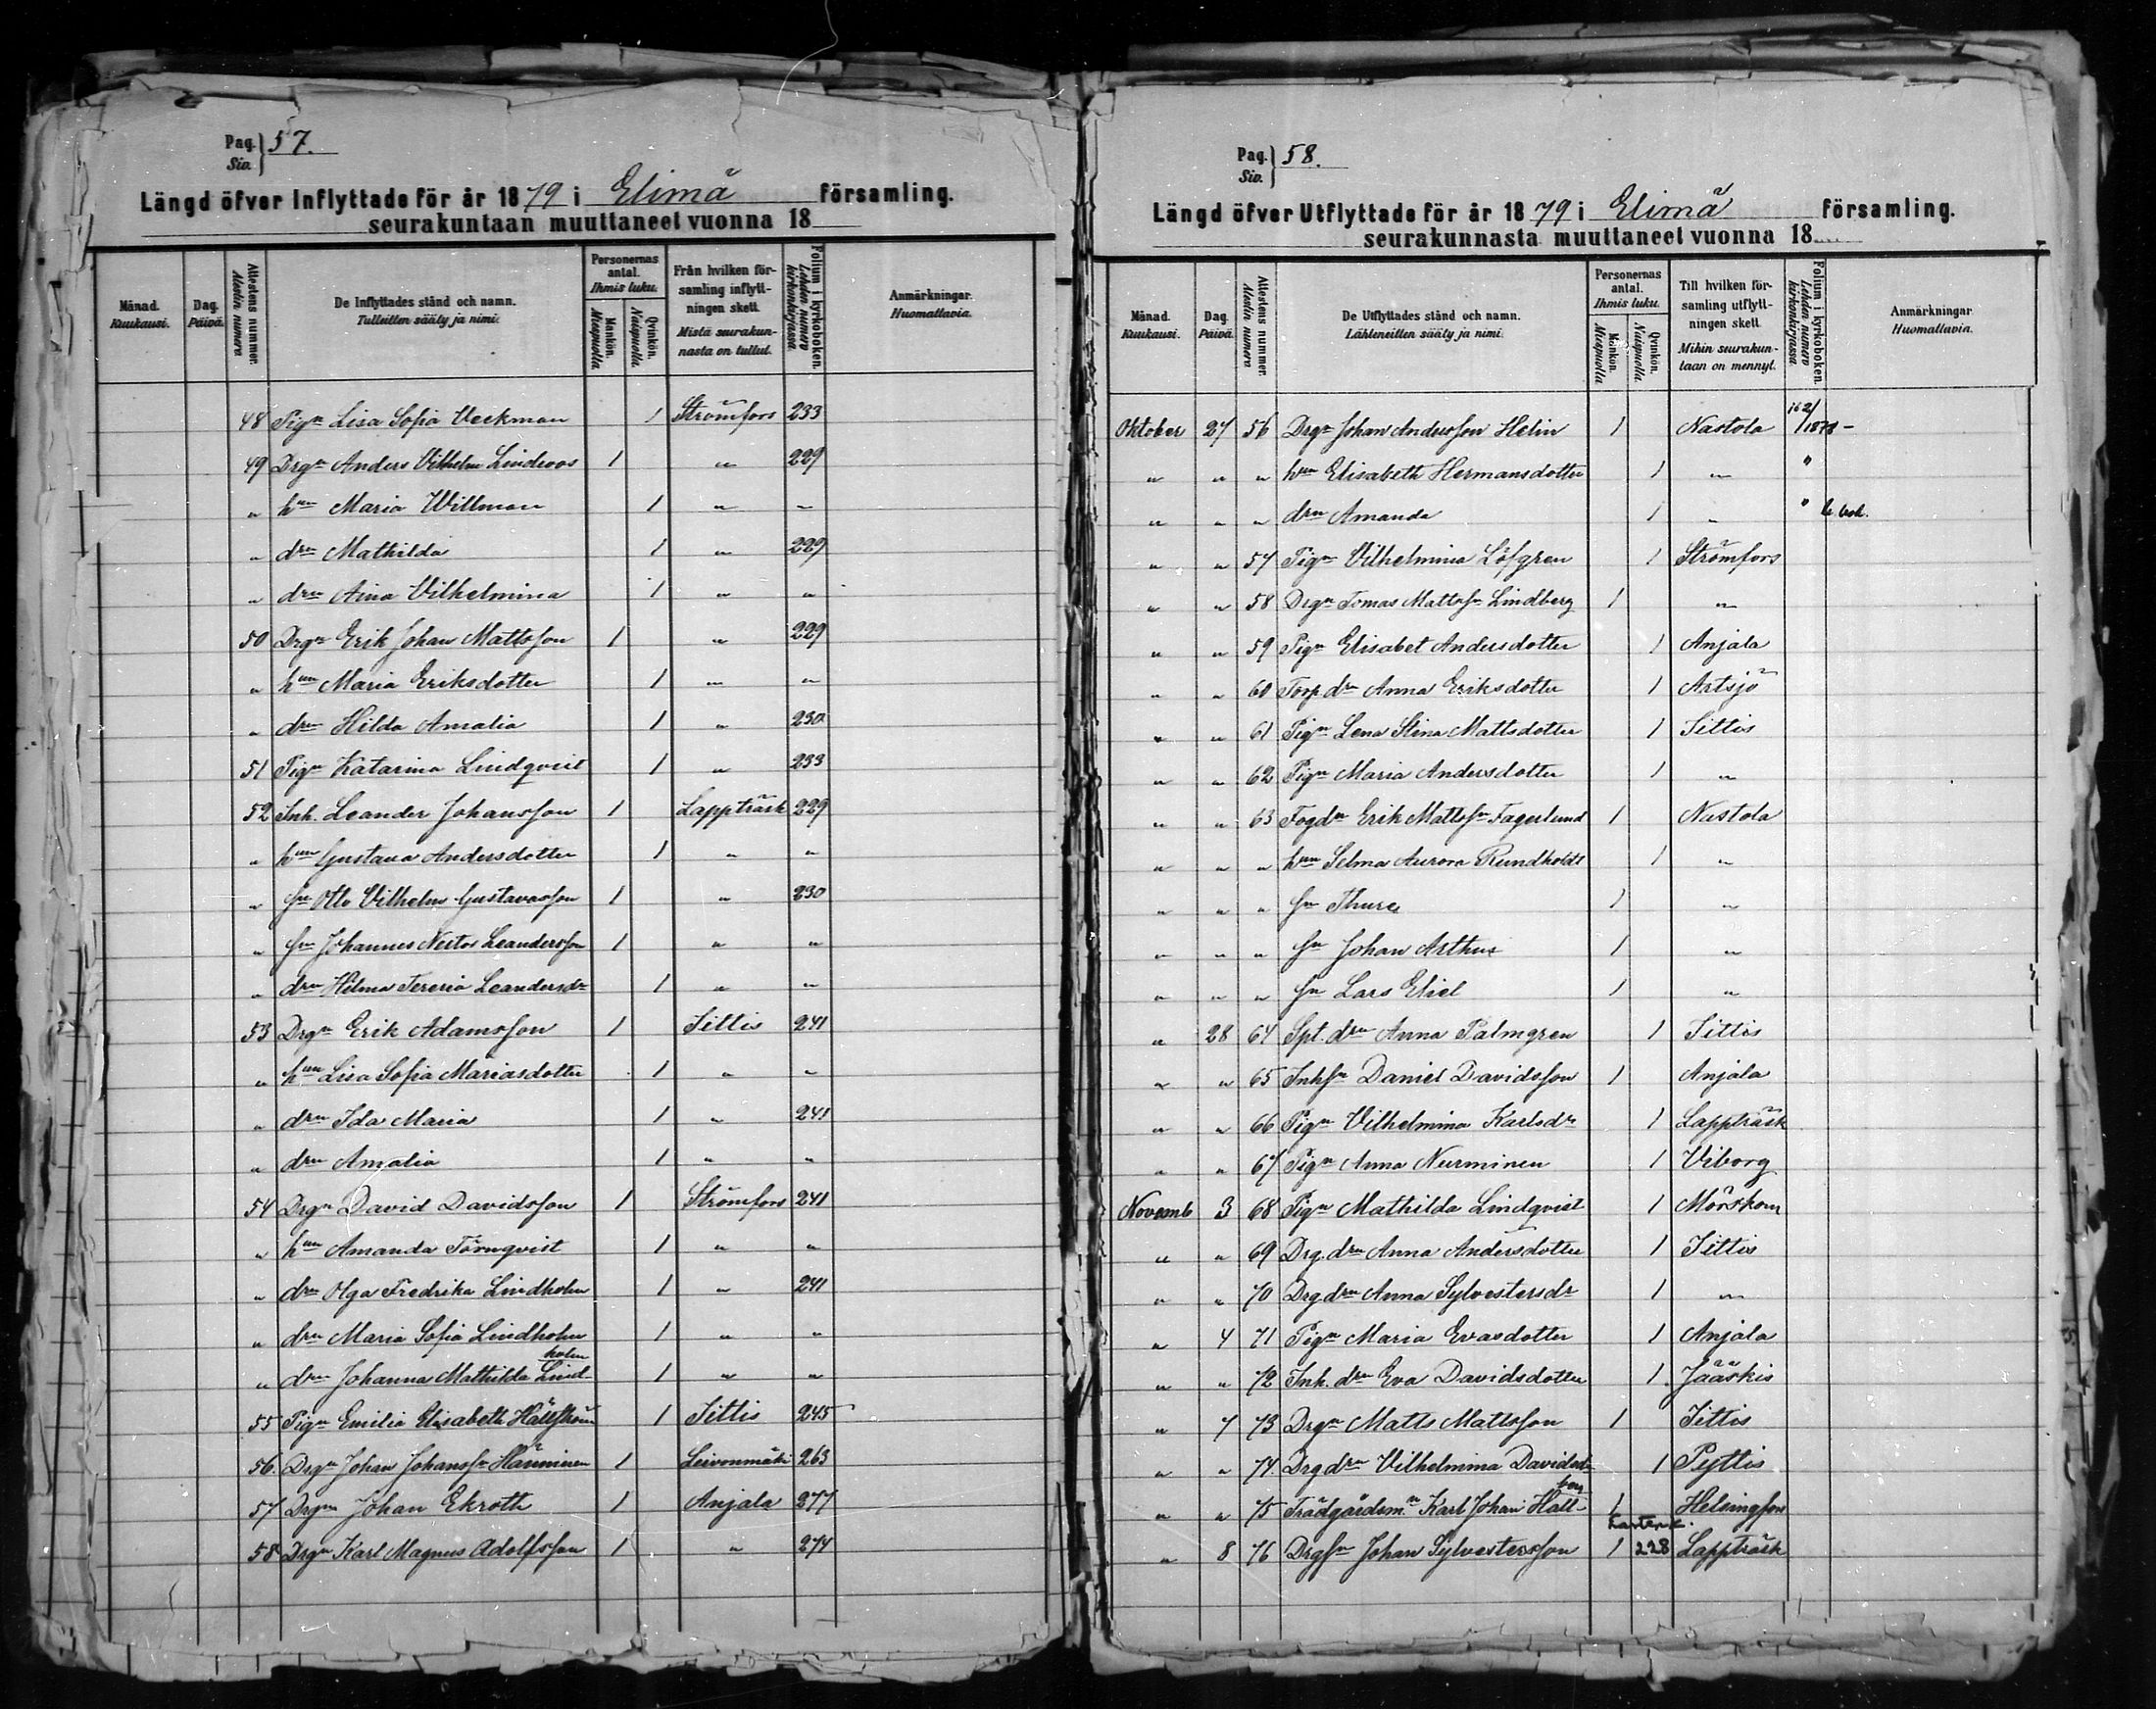 Pag. Siv. } 57.
Längd öfver Inflyttade för år 1879 i Elimä församling.
seurakuntaan muuttaneet vuonna 18
Månad. Kuukausi. | Dag. Päivä. | Attestens nummer. Atestin numero | De Inflyttades stånd och namn. Tulleitten sääty ja nimi. | Personernas antal. Ihmis luku. Mankön. Miespuolia Qvinkön. Naispuolia. | Från hvilken församling inflyttningen skett. Mistä seurakunnasta on tullut. | Folium i kyrkoboken. Lehden numero kirkonkirjassa. | Anmärkningar. Huomattavia.
48 Pign Lisa Sofia Veckman 1 Strömfors 233
49 Drgn Anders Vilhelm Lindroos 1 " 229
" hun Maria Willman 1 " "
" drn Mathilda 1 " 229
" drn Aina Vilhelmina 1 " "
50 Drgn Erik Johan Mattsson 1 " 229
" hun Maria Eriksdotter 1 " "
" drn Hilda Amalia 1 " 230
51 Pign Katarina Lindqvist 1 " 233
52 Inh. Leander Johansson 1 Lappträsk 229
" hun Gustava Andersdotter 1 " "
" sn Otto Vilhelm Gustavasson 1 " 230
" sn Johannes Nestor Leandersson 1 " "
" drn Hilma Tereria Leandersdr 1 " "
53 Drgn Erik Adamsson 1 Jittis 241
" hun Lisa Sofia Mariasdotter 1 " "
" drn Ida Maria 1 " 241
" drn Amalia 1 " "
54 Drgn David Davidsson 1 Strömfors 241
" hun Amanda Törnqvist 1 " "
" drn Olga Fredrika Lindholm 1 " 241
" drn Maria Sofia Lindholm 1 " "
" drn Johanna Mathilda Lindholm 1 " "
55 Pign Emilia Elisabeth 1 Jittis 245
56. Drgn Johan Johanss. Hänninen 1 Leivonmäki 263
57 Drgn Johan Ekroth 1 Anjala 277
58 Drgn Karl Magnus Adolfsson 1 " 274
Pag. Siv. } 58.
Längd öfver Utflyttade för år 1879 i Elimä församling.
seurakunnasta muuttaneet vuonna 18
Månad. Kuukausi. | Dag. Päivä. | Attestens nummer. Atestin numero | De Utflyttades stånd och namn. Lähteneitten sääty ja nimi. | Personernas antal. Ihmis luku. Mankön. Miespuolia Qvinkön. Naispuolia. | Till hvilken församling utflyttningen skett. Mihin seurakuntaan on mennyt. | Folium i kyrkoboken. Lehden numero kirkonkirjassa. | Anmärkningar Huomattavia.
Oktober 27 56 Drgn Johan Andersson Helin 1 Nastola 162/1878 -
" " " hun Elisabeth Hermansdotter 1 " "
" " " drn Amanda 1 " "
" " 57 Pign Vilhelmina Löfgren 1 Strömfors
" " 58 Drgn Tomas Mattss. Lindberg 1 "
" " 59 Pign Elisabet Andersdotter 1 Anjala
" " 60 Torp.drn Anna Eriksdotter 1 Artsjö
" " 61 Pign Lena Stina Mattsdotter 1 Jittis
" " 62 Pign Maria Andersdotter 1 "
" " 63 Fogdn Erik Mattss. Fagerlund 1 Nastola
" " " hun Selma Aurora Rundholdt 1 "
" " " sn Thure 1 "
" " " sn Johan Arthur 1 "
" " " sn Lars Eliel 1 "
" 28 64 Spt. drn Anna Palmgren 1 Jittis
" " 65 Inhsn Daniel Davidsson 1 Anjala
" " 66 Pign Vilhelmina Karlsdr 1 Lappträsk
" " 67 Pign Anna Nurminen 1 Viborg
Novemb 3 68 Pign Mathilda Lindqvist 1 Mörskom
" " 69 Drg. drn Anna Andersdotter 1 Jittis
" " 70 Drgdrn Anna Sylvestersdr 1 "
" 4 71 Pign Maria Evasdotter 1 Anjala
" " 72 Inh. drn Eva Davidsdotter 1 Jääskis
" 7 73 Drgn Matts Mattsson 1 Jittis
" " 74. Drgdrn Vilhelmina Davidsdr 1 Pyttis
" " 75 Trädgårdsm.n Karl Johan Hall- 1 Helsingfors
" 8 76 Drgsn Johan Sylvestersson 1 228 Lappträsk